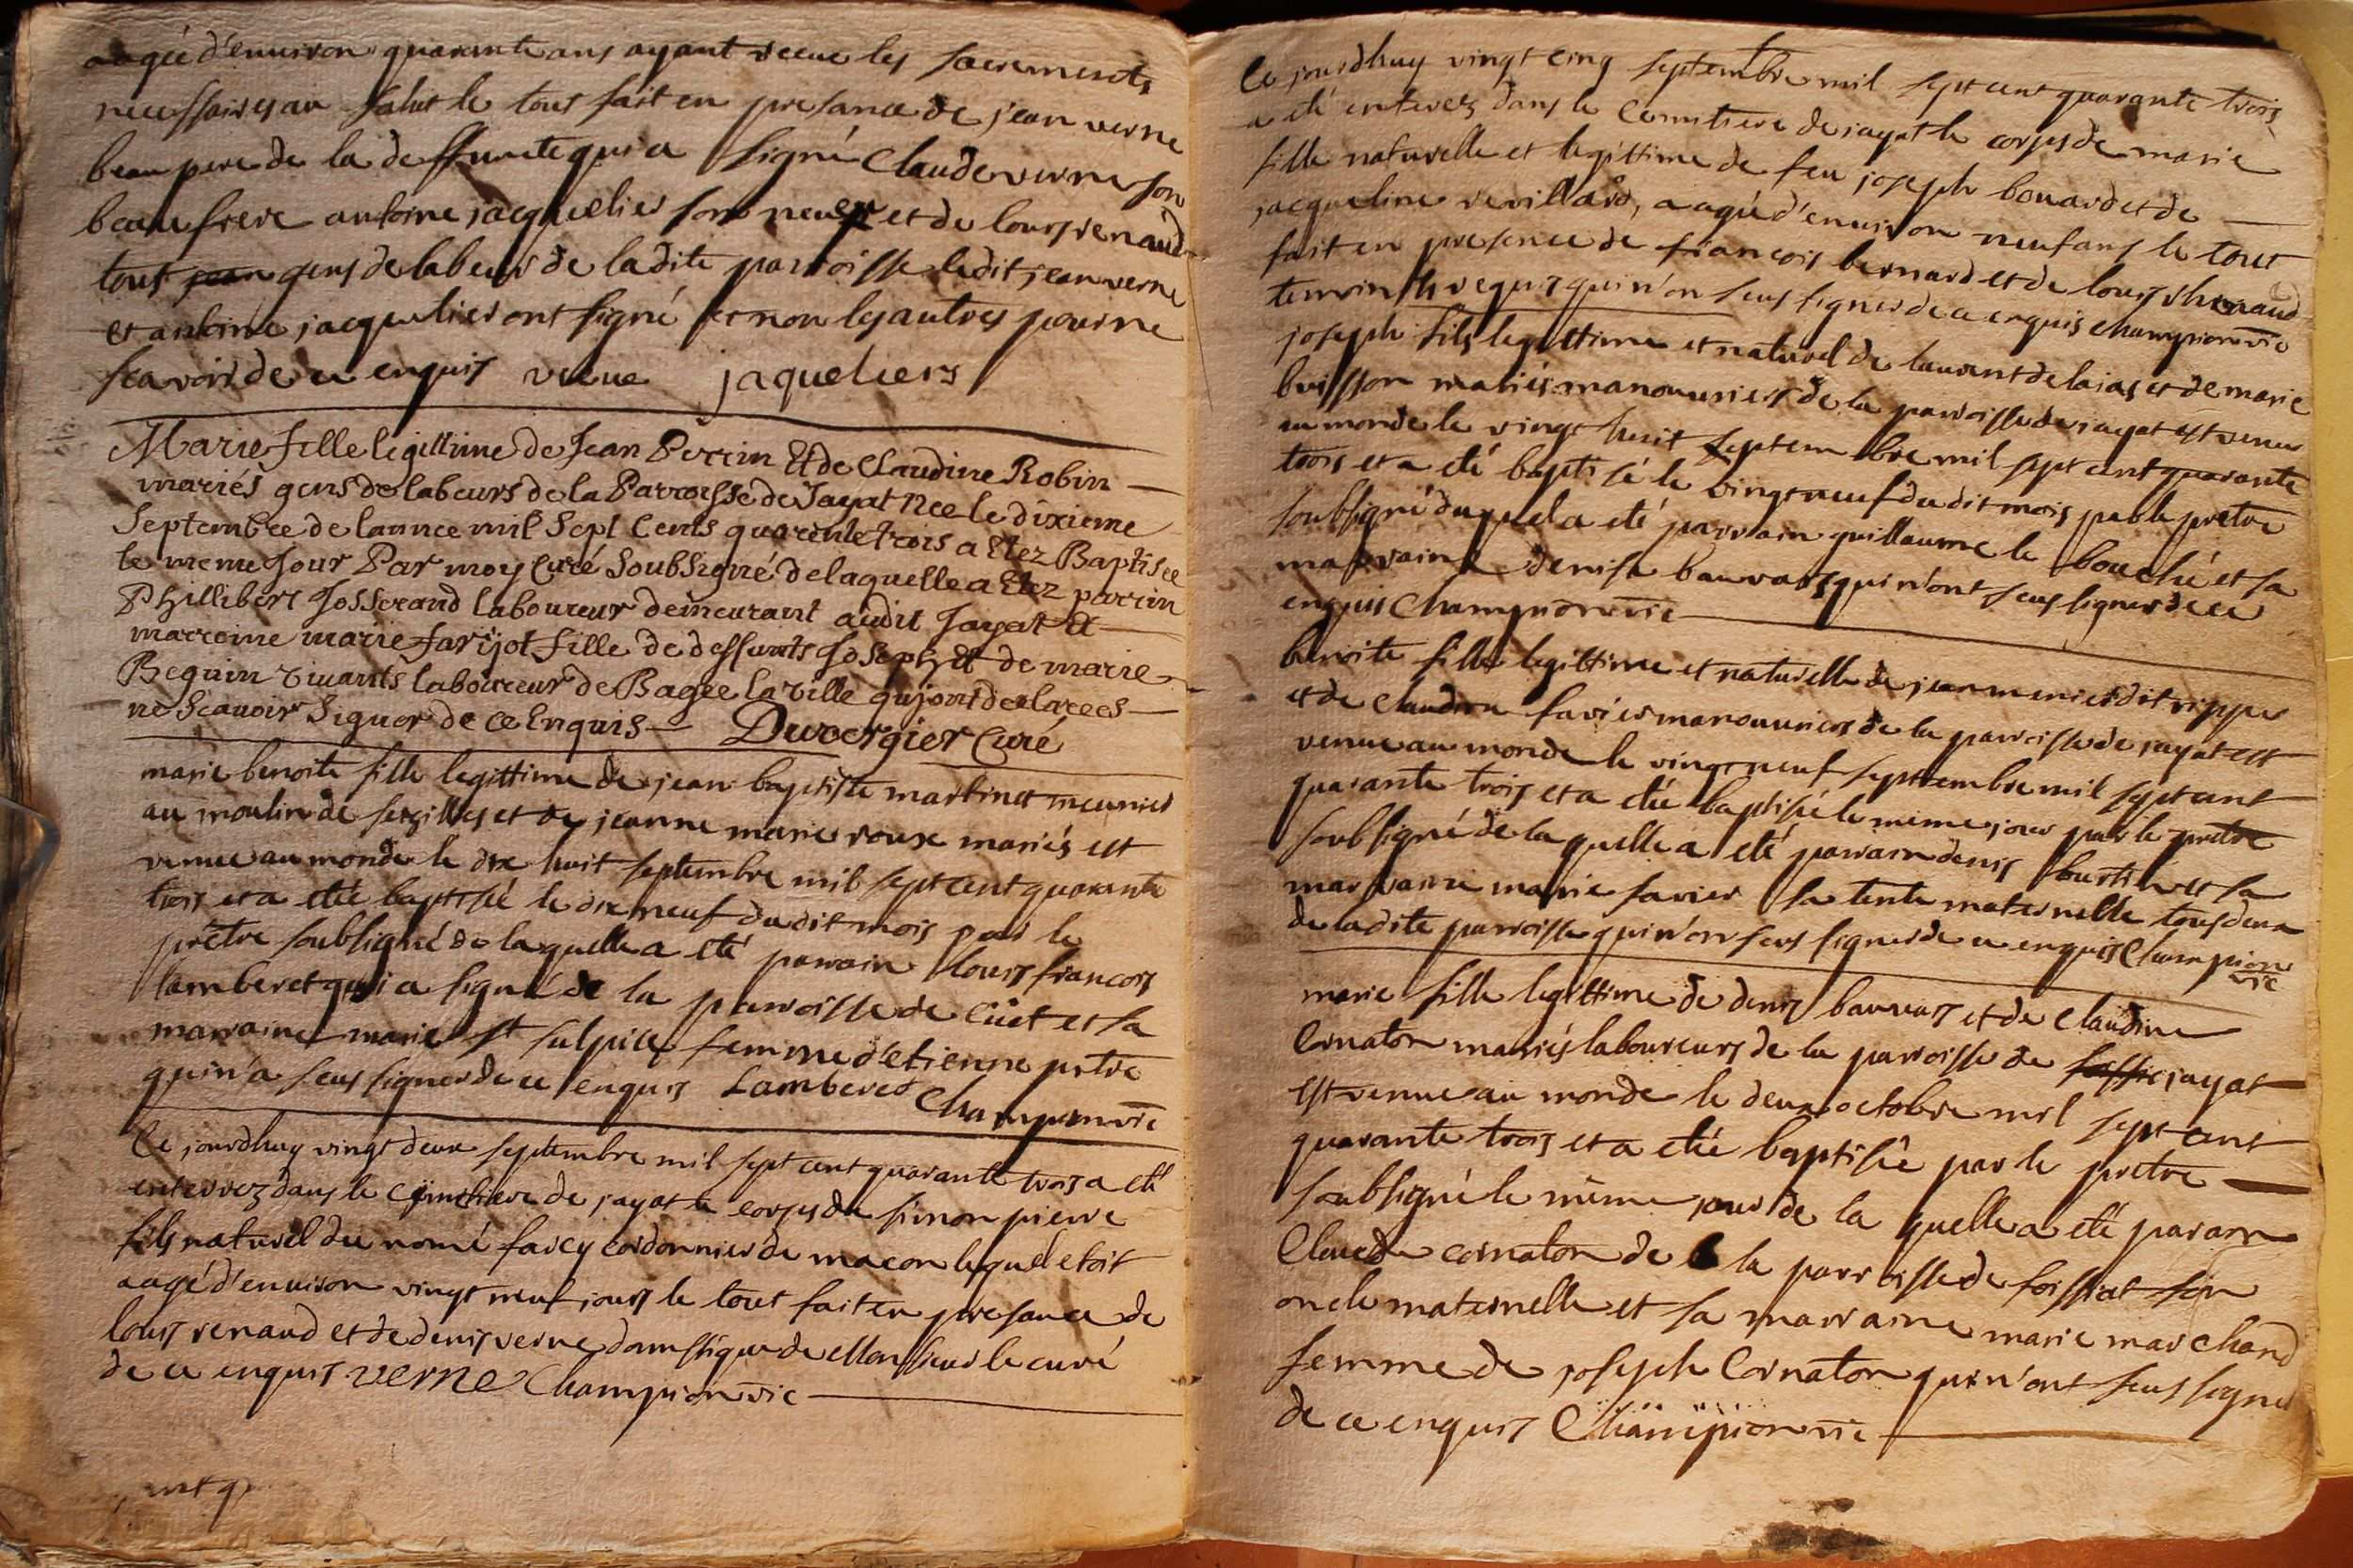 aagée d'environ quarante ans ayant receue les sacrements
necessaires au salut le tout fait en presance de jean verne
beau pere de la deffuncte qui a signé Claude verne son
beau frere antoine jacquelier son neueu et de lours renaud
tous jean gens de labeur de la dite parroisse ledit jean verne
et antoine jacquelier ont signé et non les autres pour ne
scavoir de ce enquis verne jaqueliers
Marie fille legittime de Jean Perrin Et de Claudine Robin
mariés gens de labeurs de la Parroesse de Jayat Nee le dixieme
Septembre de lannee mil Sept Cents quarente trois a Etez Baptisee
le meme Jour Par moy Curé Soubsigné de laquelle a Etez parrin
Phillibert Josserand laboureur demeurant audit Jayat Et
marreine marie farjot fille de deffunts Joseph Et de marie
Beguin vivants laboureur de Bagee la ville
ne Scauoir Signer de ce Enquis Duvergier Curé
marie benoite fille legittime de jean baptiste martinet meunier
au moulin de sezilles et de jeanne marie roux mariés est
venue au monde le dix huit septembre mil sept cent quarante
trois et a etée baptisée le dix neuf du dit mois par le
prêtre soubsigné de la quelle a eté parrain lours francois
lamberet qui a signé de la parroisse de Cüet et sa
marraine marie st sulpice femme d'etienne
qui n'a sceu signer de ce enquis Lamberet Champion vic
Ce jourdhuy vingt deux septembre mil sept cent quarante trois a eté
enterrez dans le cÿmetiere de jayat le corps de simon pierre
fils naturel du nomé farcy cordonnier de macon lequel etoit
aagé d'environ vingt neuf jours le tout fait en presance de
lours renaud et de denis verne domestique de Monsieur le curé
de ce enquis verne Champion vic
Ce jourdhuy vingt cinq septembre mil sept cent quarante trois
a eté enterez dans le Cemitiere de jayat le corps de marie
fille naturelle et legittime de feu joseph bouard et de
jacqueline revillard, aagée d'environ neuf ans le tout
fait en presence de francois bernard et de lours rhenaud
temoins requis qui n'on sceus signer de ce enquis Champion vic
joseph fils legittime et naturel de laurent delaias et de marie
buisson mariés manouuriers de la parroisse de jayat est venu
au monde le vingt huit septembre mil sept cent quarante
trois et a eté baptisé le vingt neuf du dit mois par le prêtre
soubsigné duquel a eté parrain guillaume le bouché et sa
marraine denise bauvars qui n'ont sceus signer de ce
enquis Champion vic
benoite fille legittime et naturelle de jean menier dit rippe
et de Claudine favier manouuriers de la parroisse de jayat est
venue au monde le vingt neuf septembre mil sept cent
quarante trois et a etée baptisée le même jour par le prêtre
soubsigné de la quelle a eté parrain denis burtin et sa
marraine marie favier sa tente maternelle tous deux
de la dite parroisse qui n'on sceus signer de ce enquis Champion
vic
marie fille legittime de denis bauvars et de Claudine
Cornaton mariés laboureurs de la parroisse de jayat
est venue au monde le deux octobre mil sept cent
quarante trois et a etée baptisée par le prêtre
soubsigné le même jour de la quelle a eté parrain
Claude cornaton de la parroisse de foissiat son
oncle maternelle et sa marraine marie marchand
femme de joseph Cornaton qui n'ont sceus signer
de ce enquis Champion vic